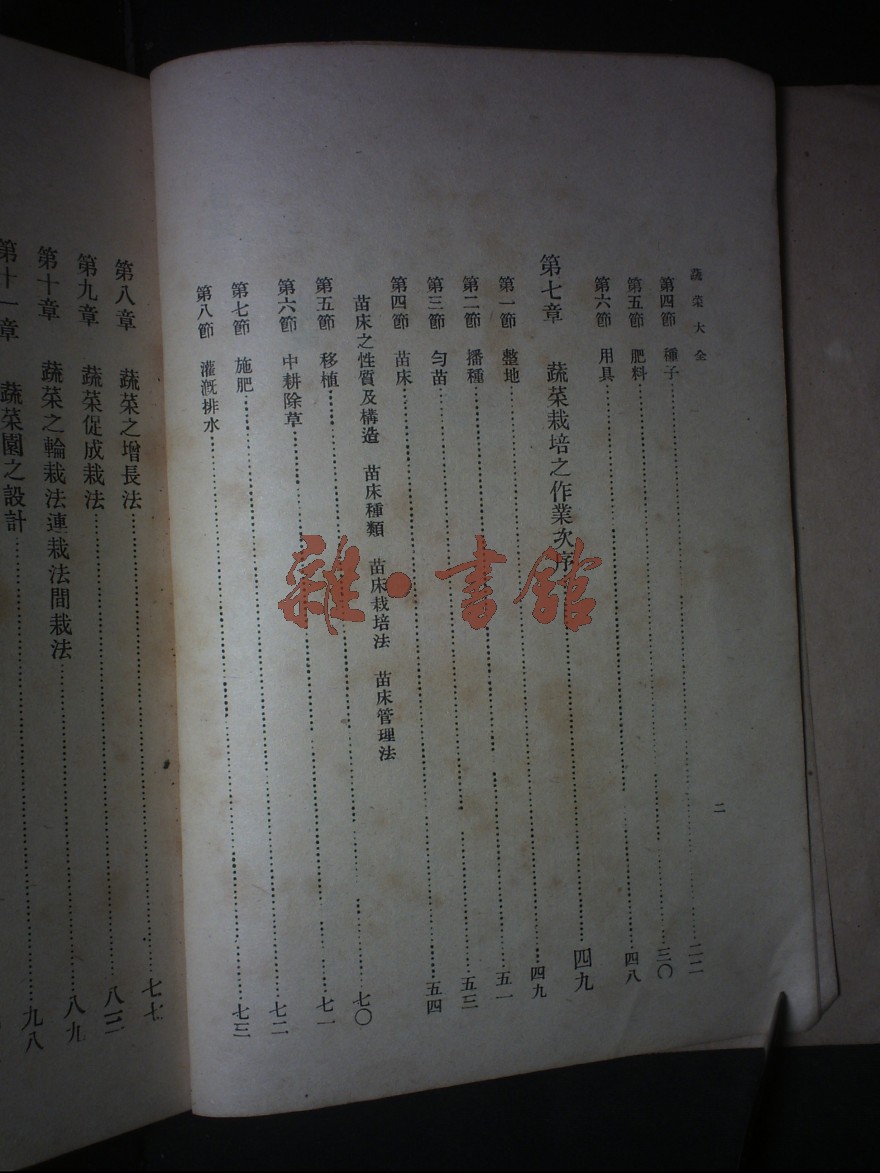 蔬菜大全
二
第四節 種子……二二
第五節 肥料……三〇
第六節 用具……四八
第七章 蔬菜栽培之作業次序……四九
第一節 整地……四九
第二節 播種……五一
第三節 勻苗……五三
第四節 苗床……五四
苗床之性質及構造 苗床種類 苗床栽培法 苗床管理法
第五節 移植……七〇
第六節 中耕除草……七一
第七節 施肥……七二
第八節 灌漑排水……七三
第八章 蔬菜之增長法……七七
第九章 蔬菜促成栽法……八三
第十章 蔬菜之輪栽法連栽法間栽法……八九
第十一章 蔬菜園之設計……九八
雜·書館